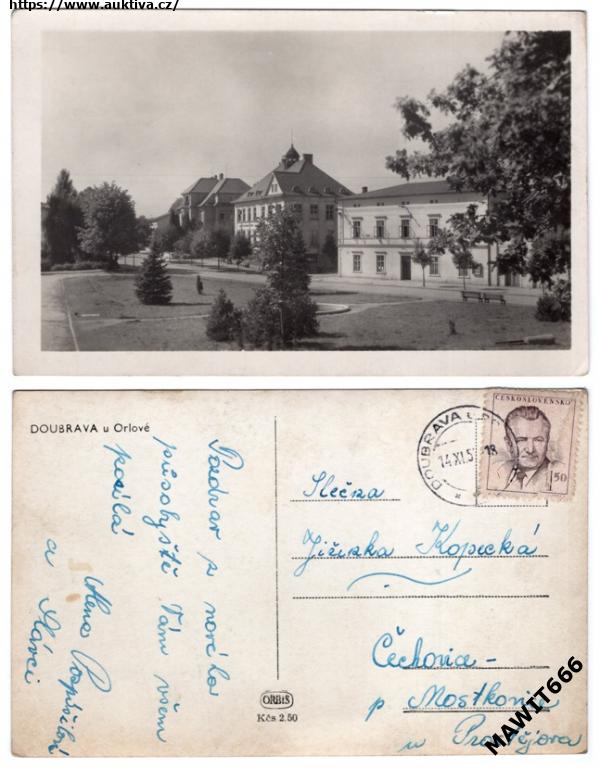 https://www.auktiva.cz/
DOUBRAVA u Orlové
Pozdrav z nového
působiště Vám všem
posílá
Alena
a Slávci
DOUBRAVA U OR
14.XI.5 18
ČESKOSLOVENSKO
1.50
Slečna
Jiřinka Kopecká
Čechovice -
p Mostkovice
u Prostějova
ORBIS
Kčs 2.50
MAWIT666